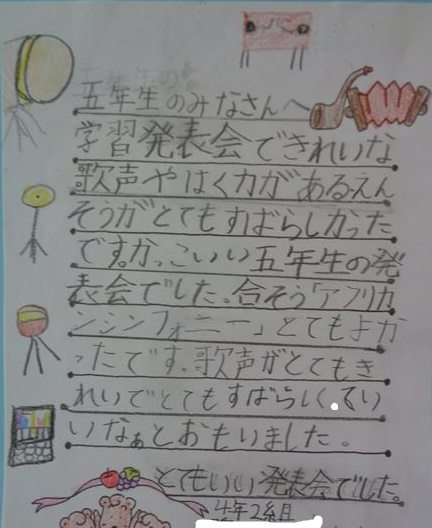 五年生のみなさんへ
学習発表会できれいな
歌声やはく力があるえん
そうがとてもすばらしかった
です。かっこいい五年生の発
表会でした。合そう「アフリカ
ンシンフォニー」とてもよか
ったです。歌声がとてもき
れいでとてもすばらしく、てい
いなぁとおもいました。
とてもいい発表会でした。
4年2組